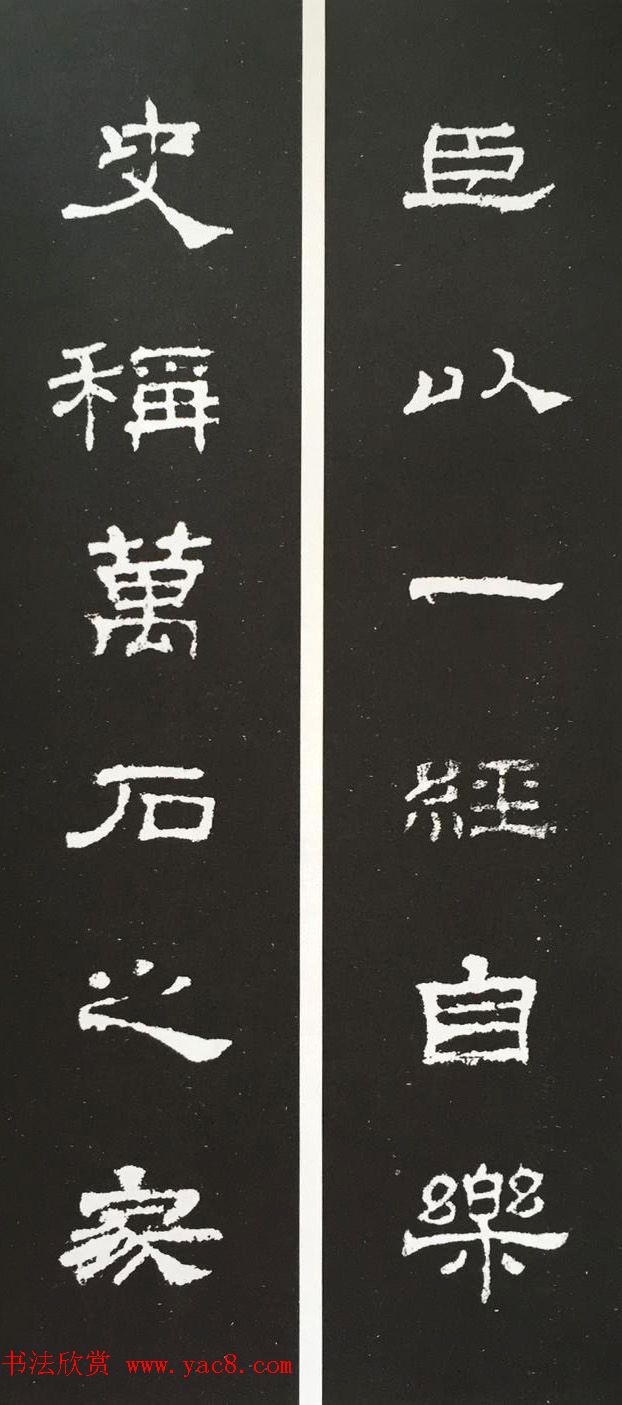 臣以一經自樂
史稱萬石之家
书法欣赏 www.yac8.com